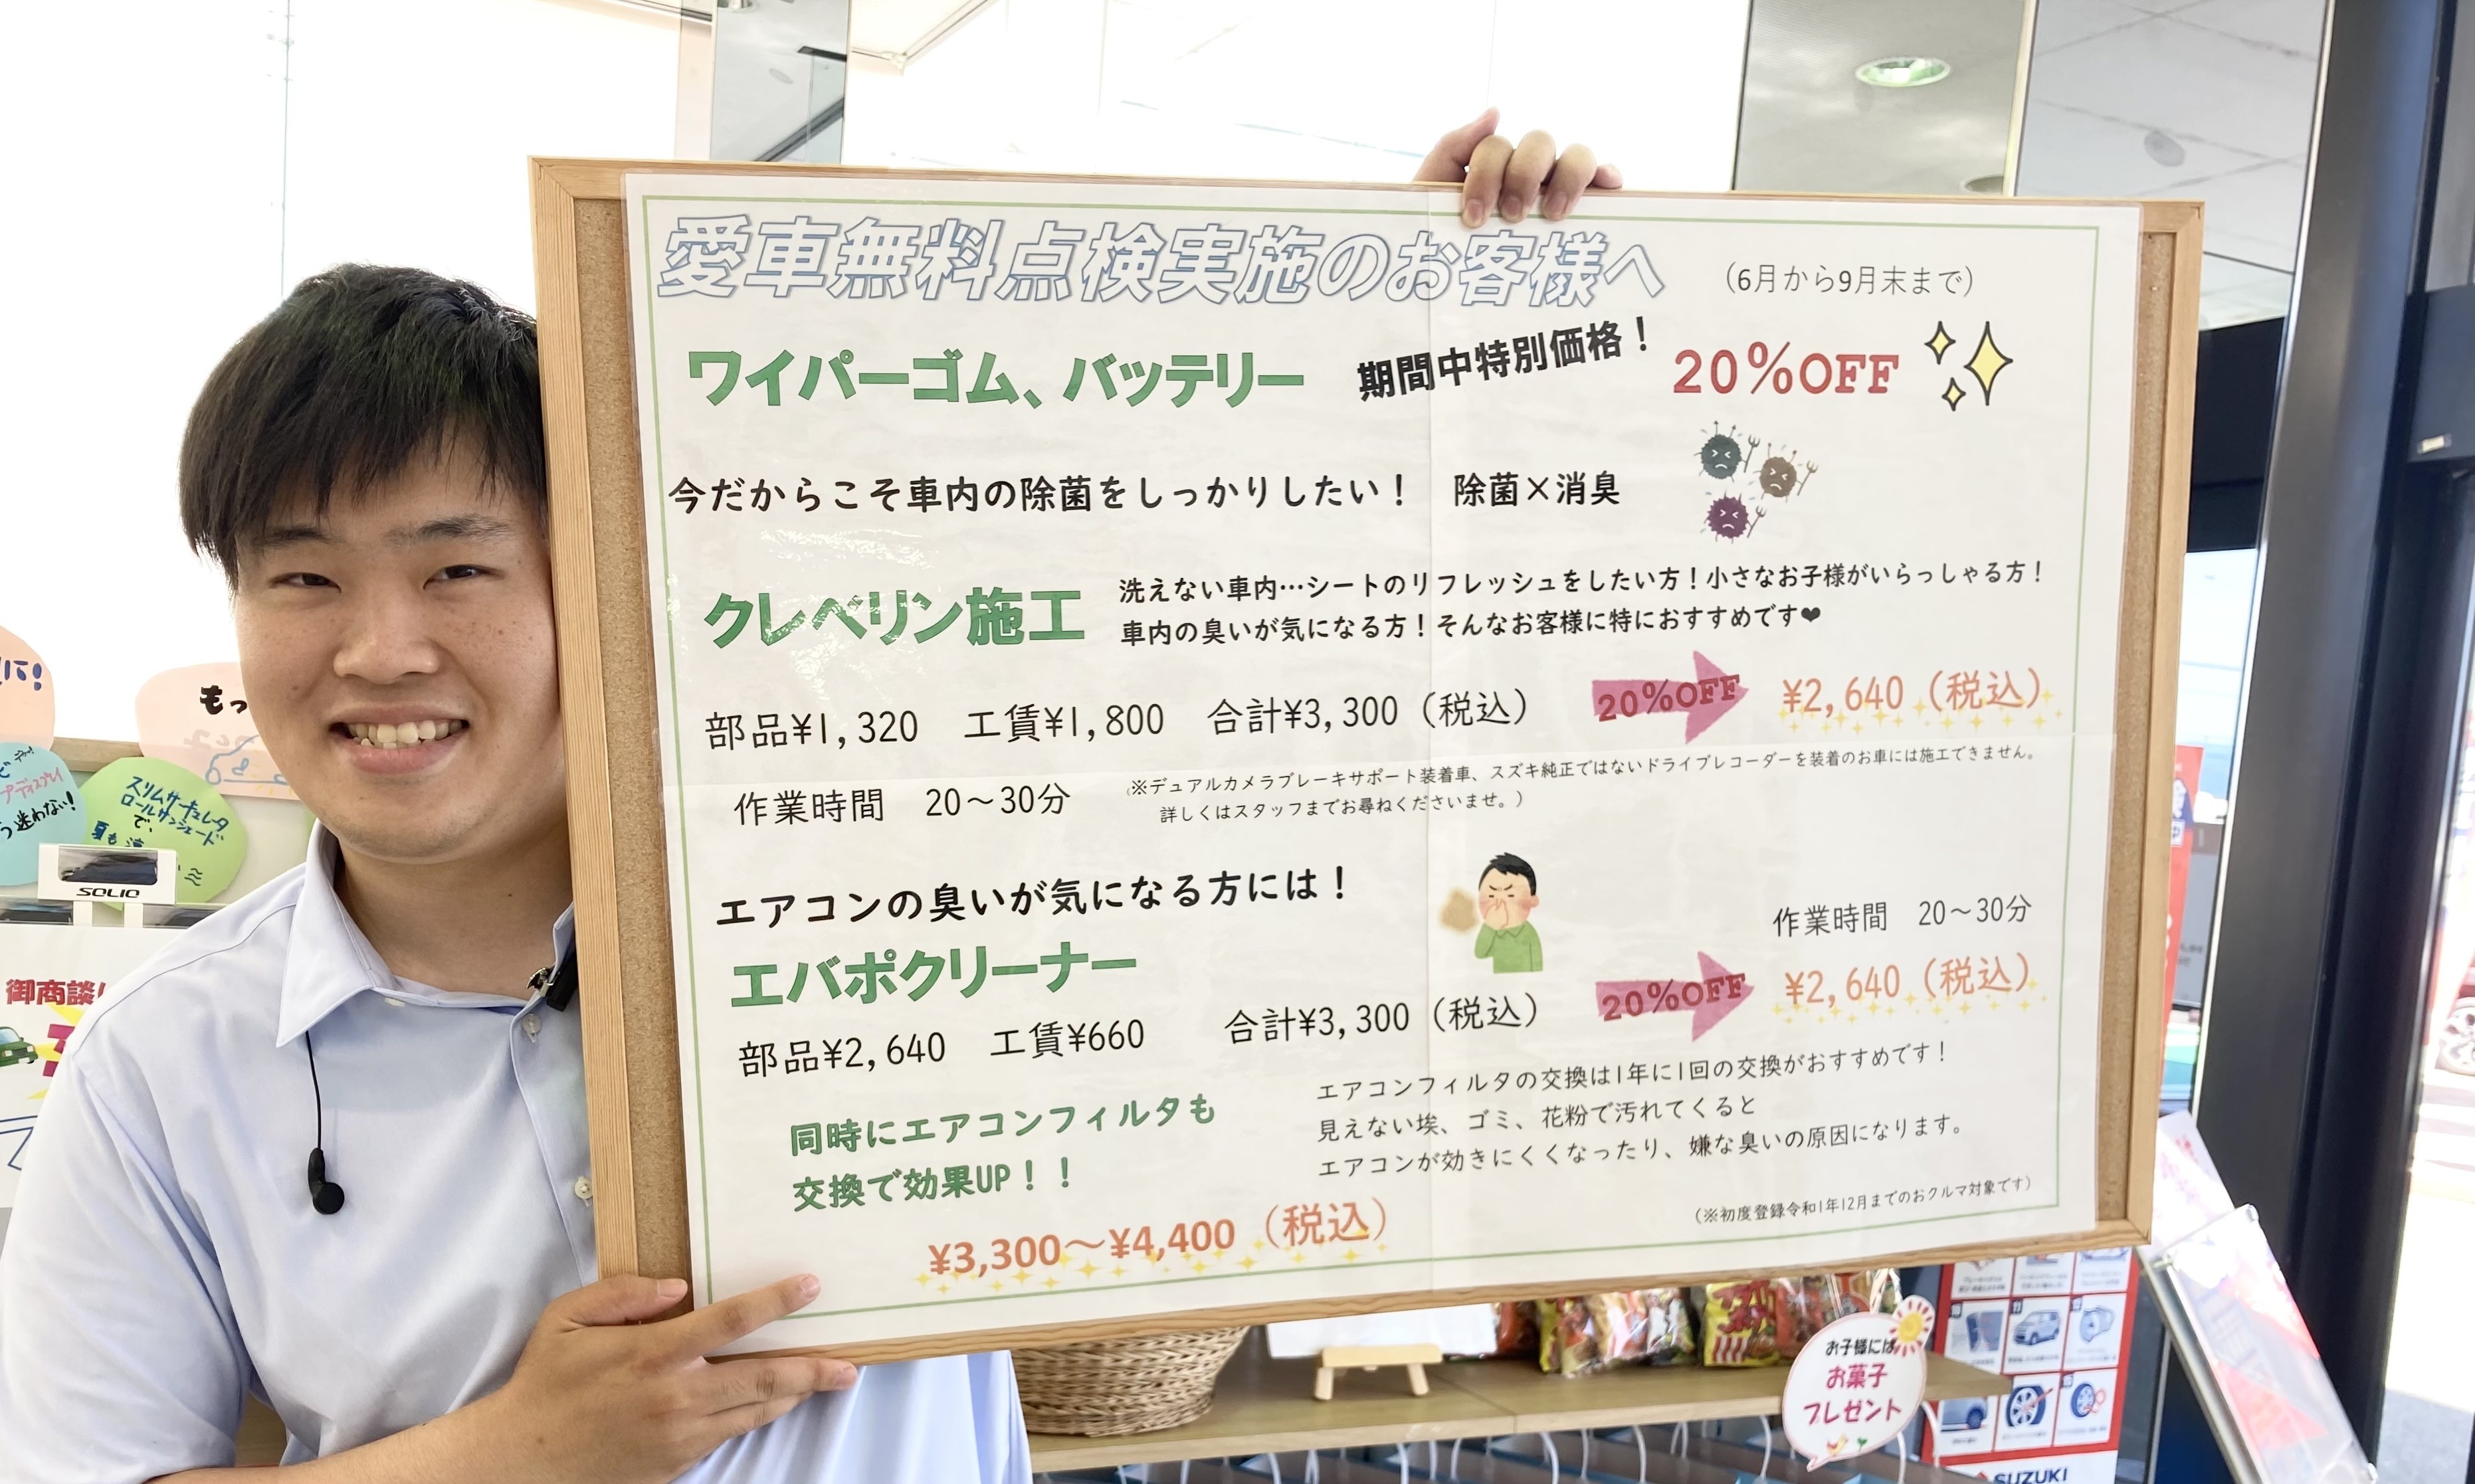 愛車無料点検実施のお客様へ （6月から9月末まで）
ワイパーゴム、バッテリー 期間中特別価格！ 20%OFF
今だからこそ車内の除菌をしっかりしたい！ 除菌×消臭
クレベリン施工
洗えない車内…シートのリフレッシュをしたい方！小さなお子様がいらっしゃる方！
車内の臭いが気になる方！そんなお客様に特におすすめです❤
部品¥1,320 工賃¥1,800 合計¥3,300（税込） 20%OFF ¥2,640（税込）
作業時間 20～30分
（※デュアルカメラブレーキサポート装着車、スズキ純正ではないドライブレコーダーを装着のお車には施工できません。
詳しくはスタッフまでお尋ねくださいませ。）
エアコンの臭いが気になる方には！
作業時間 20～30分
エバポクリーナー
部品¥2,640 工賃¥660 合計¥3,300（税込） 20%OFF ¥2,640（税込）
同時にエアコンフィルタも
交換で効果UP！！
¥3,300～¥4,400（税込）
エアコンフィルタの交換は1年に1回の交換がおすすめです！
見えない埃、ゴミ、花粉で汚れてくると
エアコンが効きにくくなったり、嫌な臭いの原因になります。
（※初度登録令和1年12月までのおクルマ対象です）
もっ
う迷わない！
スリムサーキュレータ
ロールサンシェード
で、
夏も
SOLIO
御商談
お子様には
お菓子
プレゼント
SUZUKI